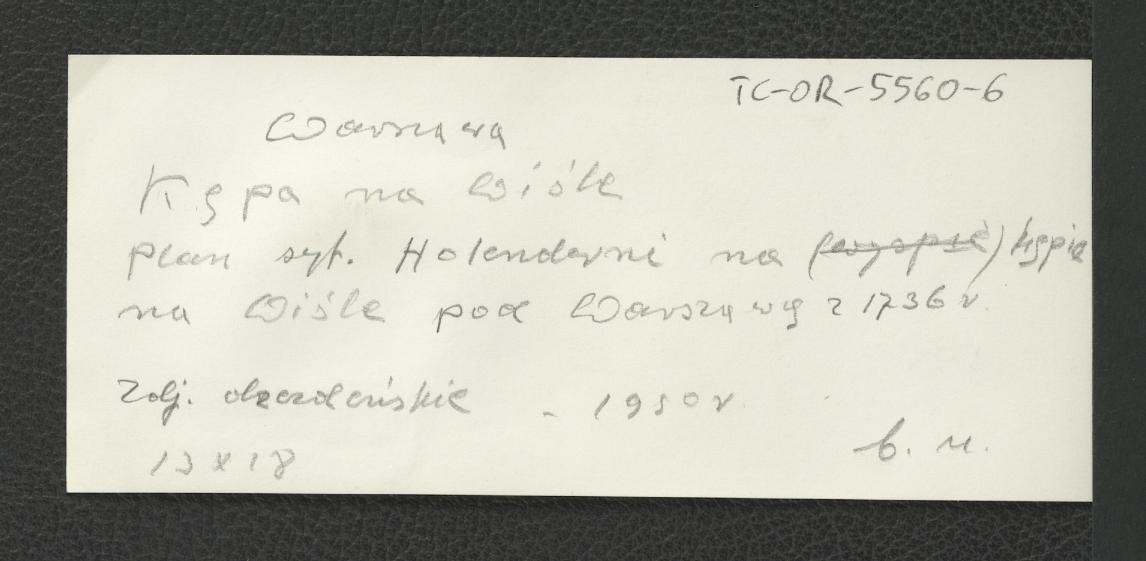 TC-OR-5560-6
Warszawa
Kępa na Wiśle
plan syt. Holenderni na ( ) kępie
na Wiśle pod Warszawą z 1736 r.
Zdj. drezdeńskie - 1950 r.
13 x 18
b. u.